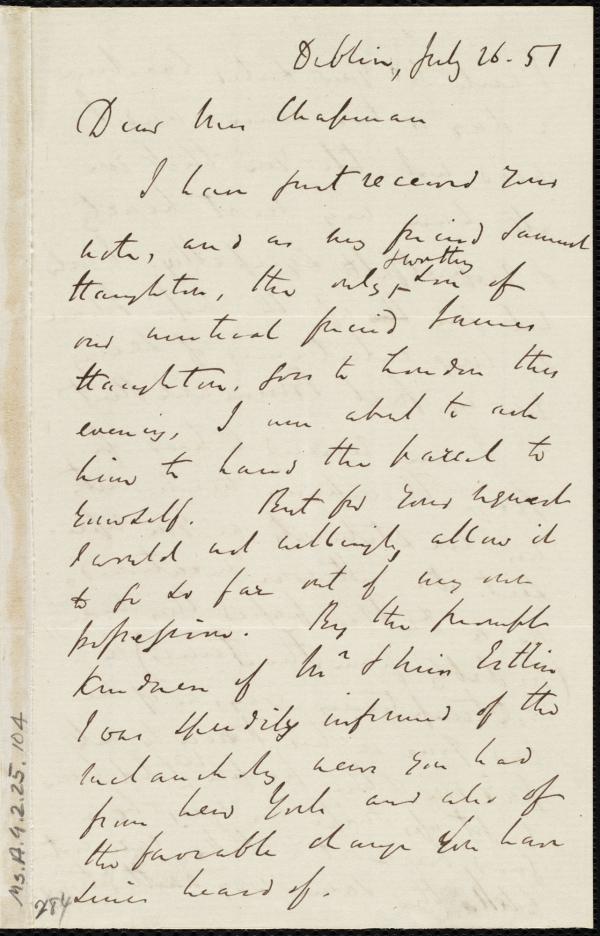 Dublin, July 26 - 51
Dear Mrs Chapman
I have just received your
note, and as my friend Samuel
Haughton, the only worthy son of
our mutual friend James
Haughton, goes to London this
evening, I am about to ask
him to hand the parcel to
yourself. But for your request
I would not willingly allow it
to go so far out of my own
possession. By the prompt
kindness of Mr & Miss Estlin
I was speedily informed of the
melancholy news you had
from New York and also of
the favorable change you have
since heard of.
Ms. A. 9. 2. 25. 104
284